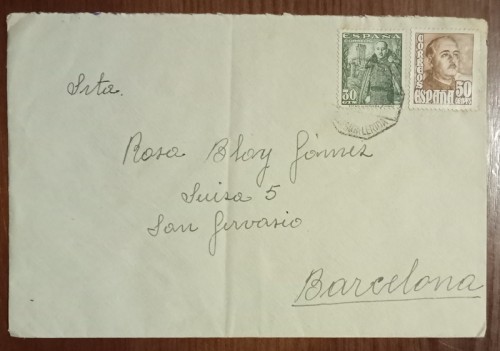 ESPAÑA
30
CTS
CORREOS
ESPAÑA
50
CENTS
Srta.
Rosa Blay Gómez
Suiza 5
San Gervasio
Barcelona